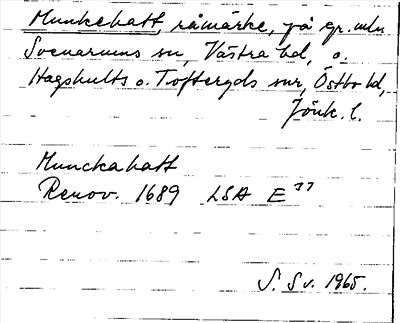 Munkehatt, råmärke, på gr. mln
Svenarums sn, Västra hd, o.
Hagshults o. Tofteryds snr, Östbo hd,
Jönk. l.
Munckahatt
Renov. 1689 LSA E 77
S. Sv. 1965.